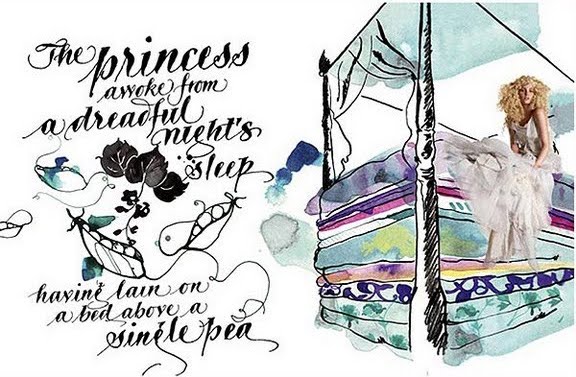 The princess
awoke from
a dreadful
night's
sleep
having lain on
a bed above a
single pea